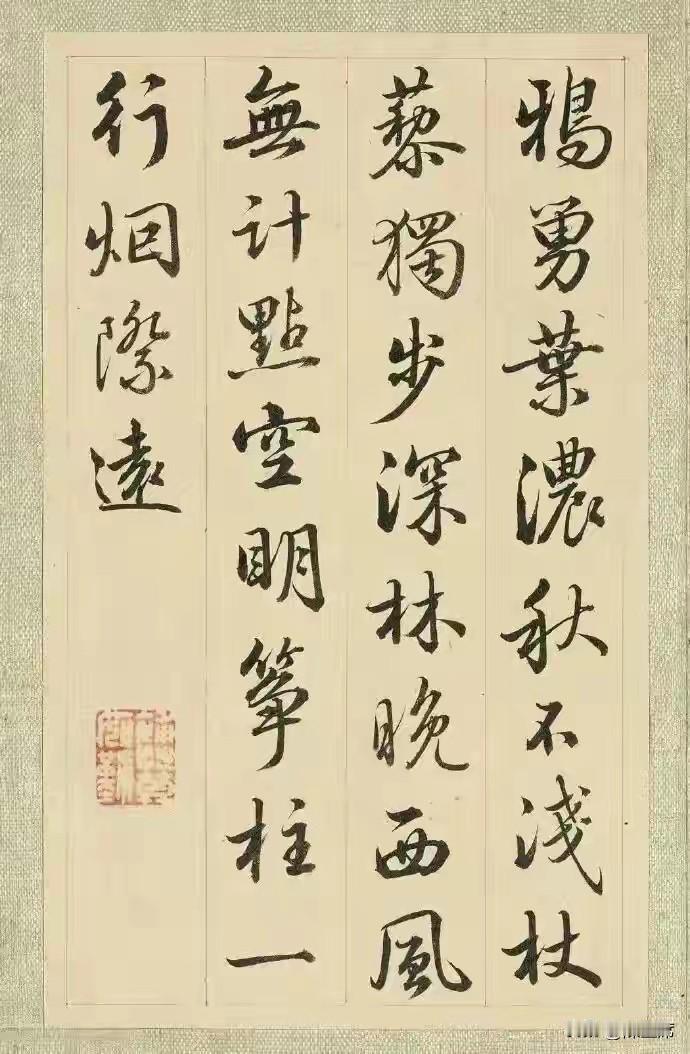 鴉舅葉濃秋不淺杖
藜獨步深林晚西風
無計點空明箏柱一
行烟際遠